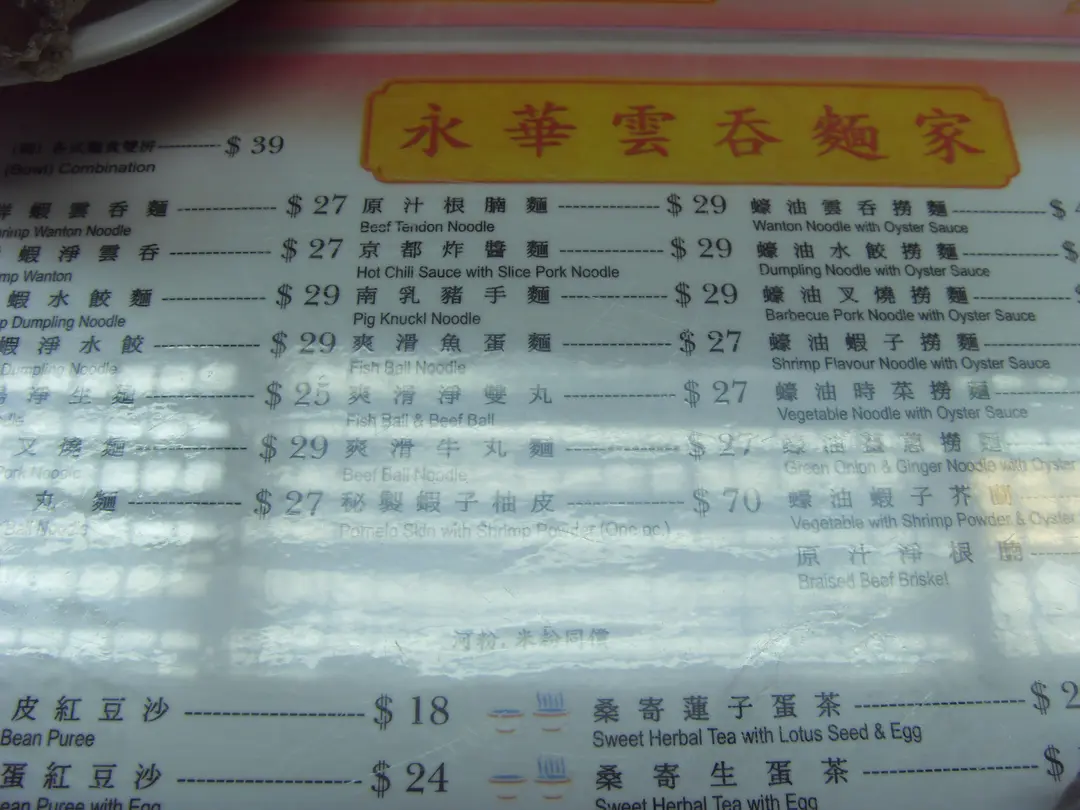 永華雲吞麵家
$ 39
(Bowl) Combination
蝦雲吞麵 $ 27
Wanton Noodle
蝦淨雲吞 $ 27
Wanton
蝦水餃麵 $ 29
Dumpling Noodle
蝦淨水餃 $ 29
Dumpling Noodle
淨生麵 $ 25
叉燒麵 $ 29
Pork Noodle
丸麵 $ 27
Ball Noodle
原汁根腩麵 $ 29
Beef Tendon Noodle
京都炸醬麵 $ 29
Hot Chili Sauce with Slice Pork Noodle
南乳豬手麵 $ 29
Pig Knuckl Noodle
爽滑魚蛋麵 $ 27
Fish Ball Noodle
爽滑淨雙丸 $ 27
Fish Ball & Beef Ball
爽滑牛丸麵 $ 27
Beef Ball Noodle
秘製蝦子柚皮 $ 70
Pomelo Skin with Shrimp Powder (One pc.)
蠔油雲吞撈麵 $
Wanton Noodle with Oyster Sauce
蠔油水餃撈麵 $
Dumpling Noodle with Oyster Sauce
蠔油叉燒撈麵
Barbecue Pork Noodle with Oyster Sauce
蠔油蝦子撈麵
Shrimp Flavour Noodle with Oyster Sauce
蠔油時菜撈麵
Vegetable Noodle with Oyster Sauce
蠔油薑蔥撈麵
Green Onion & Ginger Noodle with Oyster
蠔油蝦子芥蘭
Vegetable with Shrimp Powder & Oyster
原汁淨根腩
Braised Beaf Brisket
河粉,米粉同價
皮紅豆沙 $ 18
Bean Puree
蛋紅豆沙 $ 24
Bean Puree with Egg
桑寄蓮子蛋茶 $ 2
Sweet Herbal Tea with Lotus Seed & Egg
桑寄生蛋茶 $
Sweet Herbal Tea with Egg